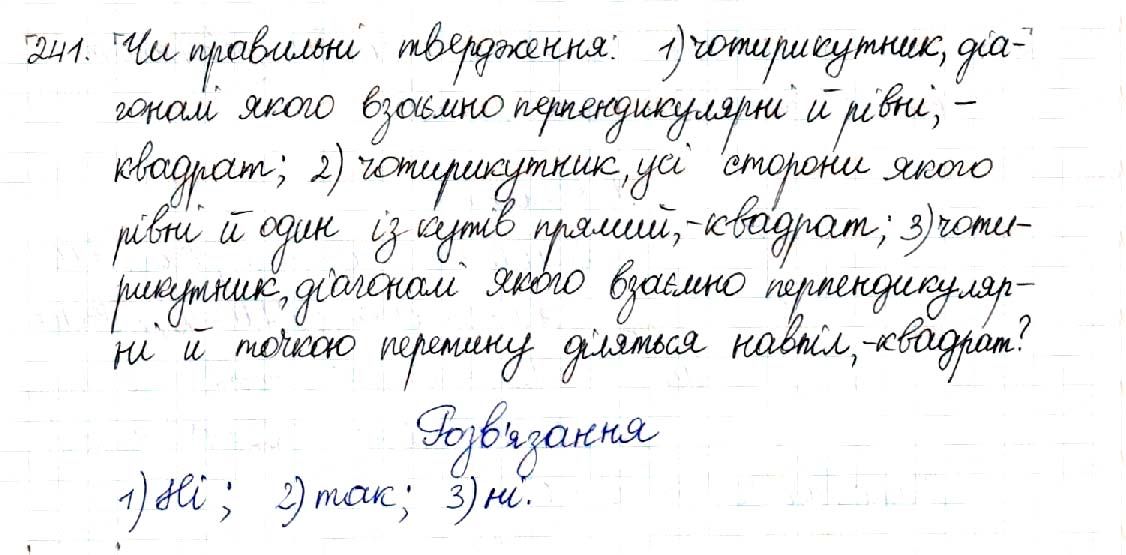 241. Чи правильні твердження: 1) чотирикутник, діа-
гоналі якого взаємно перпендикулярні й рівні, –
квадрат; 2) чотирикутник, усі сторони якого
рівні й один із кутів прямий, – квадрат; 3) чоти-
рикутник, діагоналі якого взаємно перпендикуляр-
ні й точкою перетину діляться навпіл, – квадрат?
Розв'язання
1) Ні; 2) так; 3) ні.